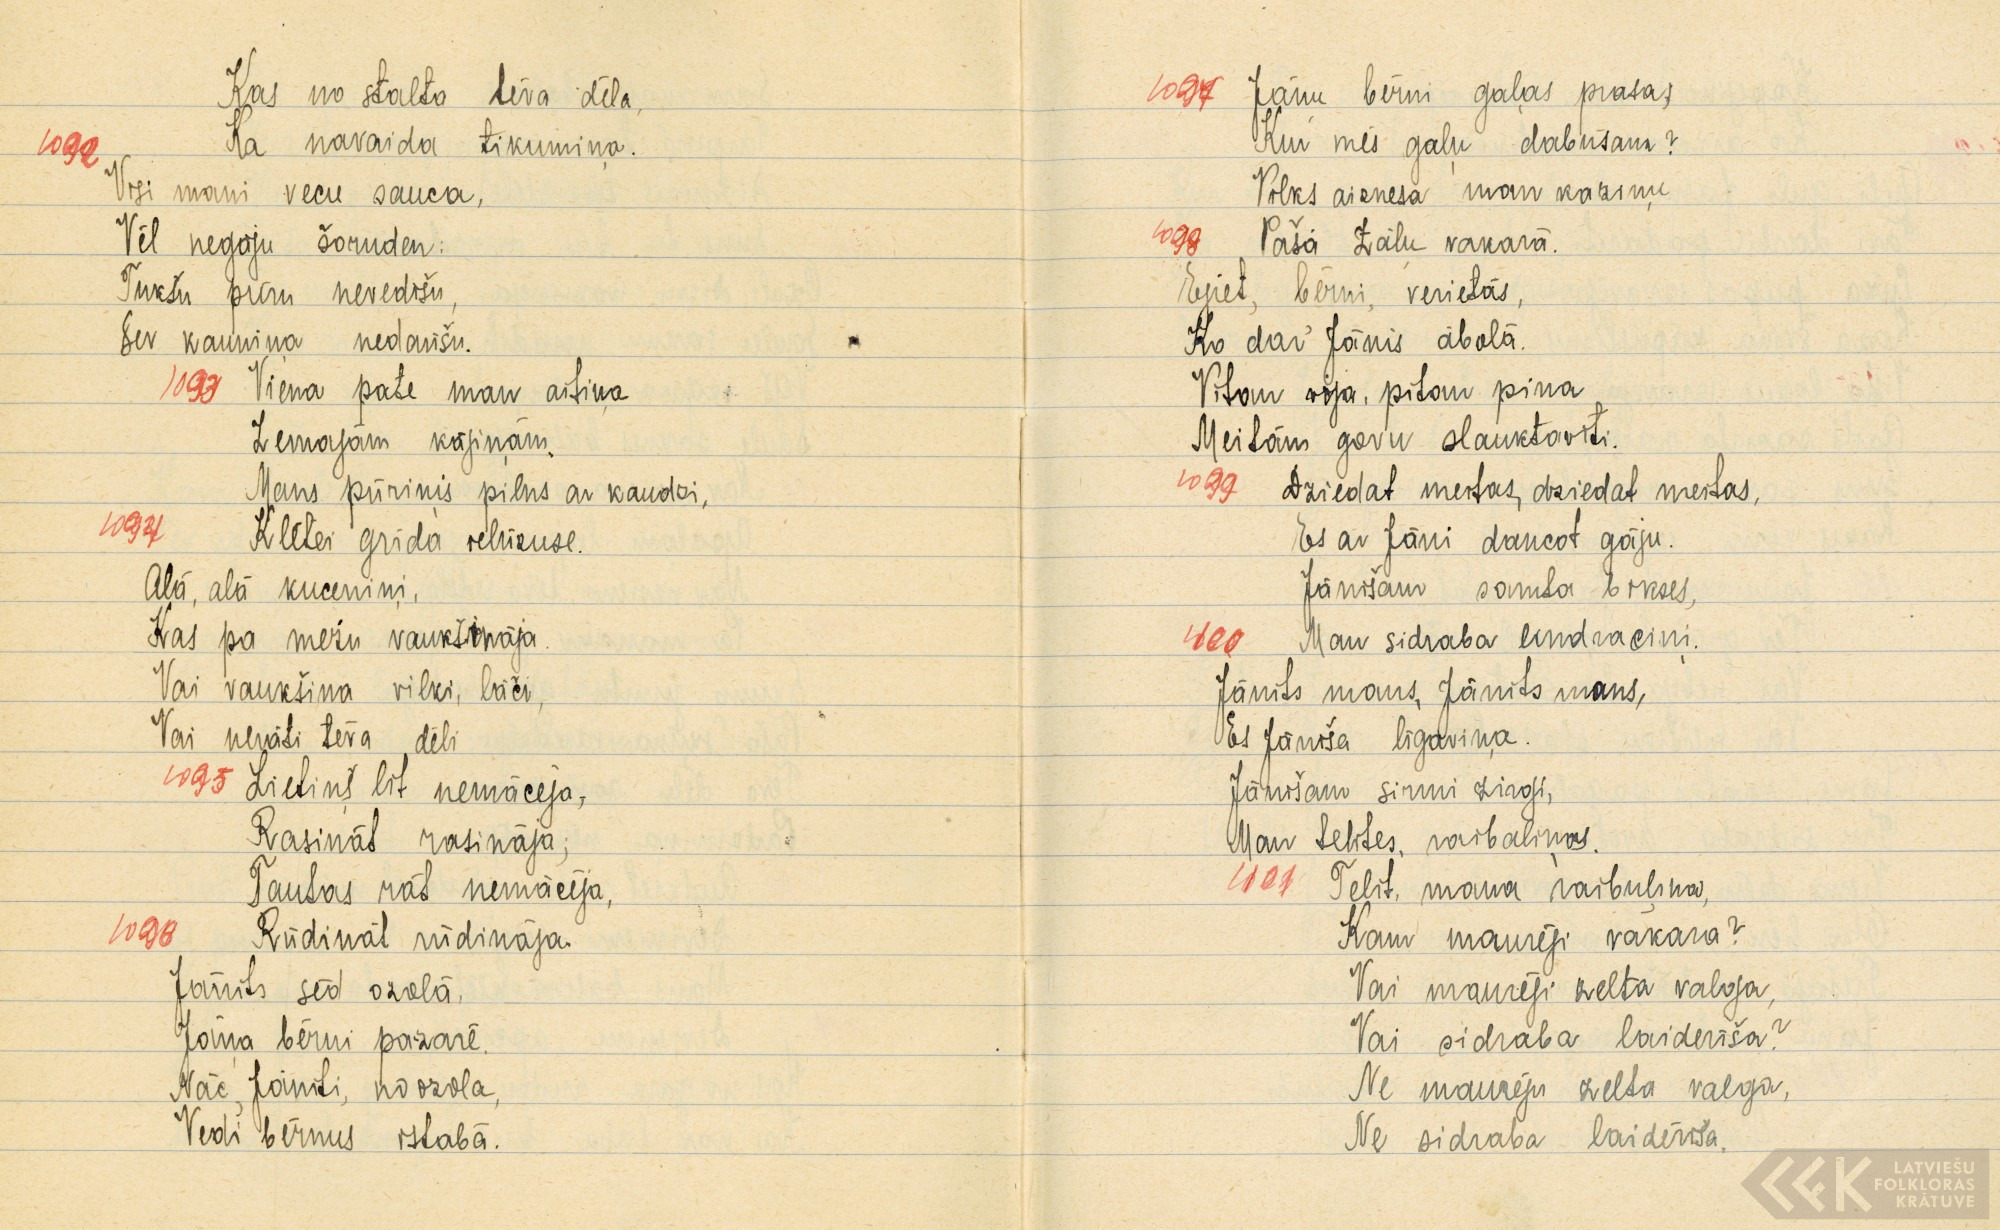 Kas no stalta tēva dēla,
1092 Ka navaida tikumiņa.
Visi mani vecu sauca,
Vēl negāju šoruden:
Tukšu pūru nevedīšu,
Sev kauniņa nedarīšu.
1093 Viena pate man aitiņa
Zemajām kājiņām,
Mans pūriņis pilns ar kaudzi,
1094 Klētei grīda ielūzuse.
Alā, alā kuceniņi,
Kas pa mežuraukšināja.
Vai raukšina vilki, lāči,
Vai nerāti tēva dēli
1095 Lietiņš līt nemācēja,
Rasināt rasināja;
Tautas rāt nemācēja,
1096 Rūdināt rūdināja.
Jānīts sēd ozolā,
Jāņa bērni pazarē.
Nāc, Jānīti, no ozola,
Vedi bērnus istabā.
1097 Jāņu bērni gaļas prasa,
Kur mēs gaļu dabūsam?
Vilks aiznesa man kaziņu
1098 Pašā Zāļu vakarā.
Ejiet, bērni, verietās,
Ko dar' Jānis ābolā.
Vītan vija, pītan pina
Meitām govu slauktavīti.
1099 Dziedat meitas, dziedat meitas,
Es ar Jāni dancot gāju.
Jānīšam samta bikses,
1100 Man sidraba lindraciņi.
Jānīts mans, Jānīts mans,
Es Jānīša līgaviņa.
Jānīšam sirmi zirgi,
Man telītes, raibaliņas.
1101 Telīt, mana raibuļiņa,
Kam maurēji vakara?
Vai maurēji zelta valga,
Vai sidraba laiderīša?
Ne maurēju zelta valga,
Ne sidraba laidērīša.
LATVIEŠU
FOLKLORAS
KRĀTUVE